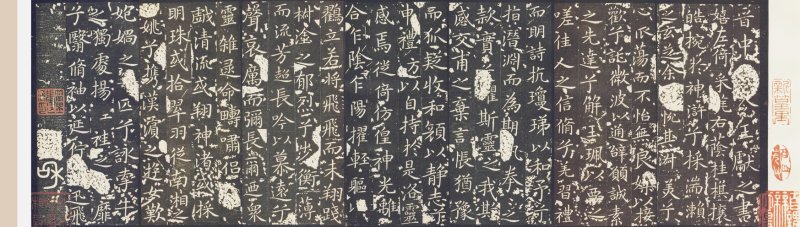 晉中令王獻之書
嬉左倚采旄右蔭桂旗攘
皓捥於神滸兮采湍瀨
玄芝余悅其淑美兮
心振蕩而不怡無良媒以接
歡兮託微波以通辭願誠素
之先達兮解玉珮以要之
嗟佳人之信脩兮羌習禮
而明詩抗瓊珶以和予兮
指潛淵而為期拳之
款實懼斯靈之我欺
感交甫之棄言悵猶豫
而狐疑收和顏以靜志兮
申禮防以自持於是洛靈
感焉徙倚彷徨神光離
合乍陰乍陽擢輕軀
鶴立若將飛而未翔踐
椒塗之郁烈兮步衡薄
而流芳超長吟以慕遠兮
聲哀厲而彌長爾乃衆
靈雜遝命疇嘯侶或
戲清流或翔神渚或採
明珠或拾翠羽從南湘之
二姚兮攜漢濱之遊女歎
妃媧之匹兮詠牽牛
之獨處揚輕袿之靡
兮翳脩袖以延佇迅飛